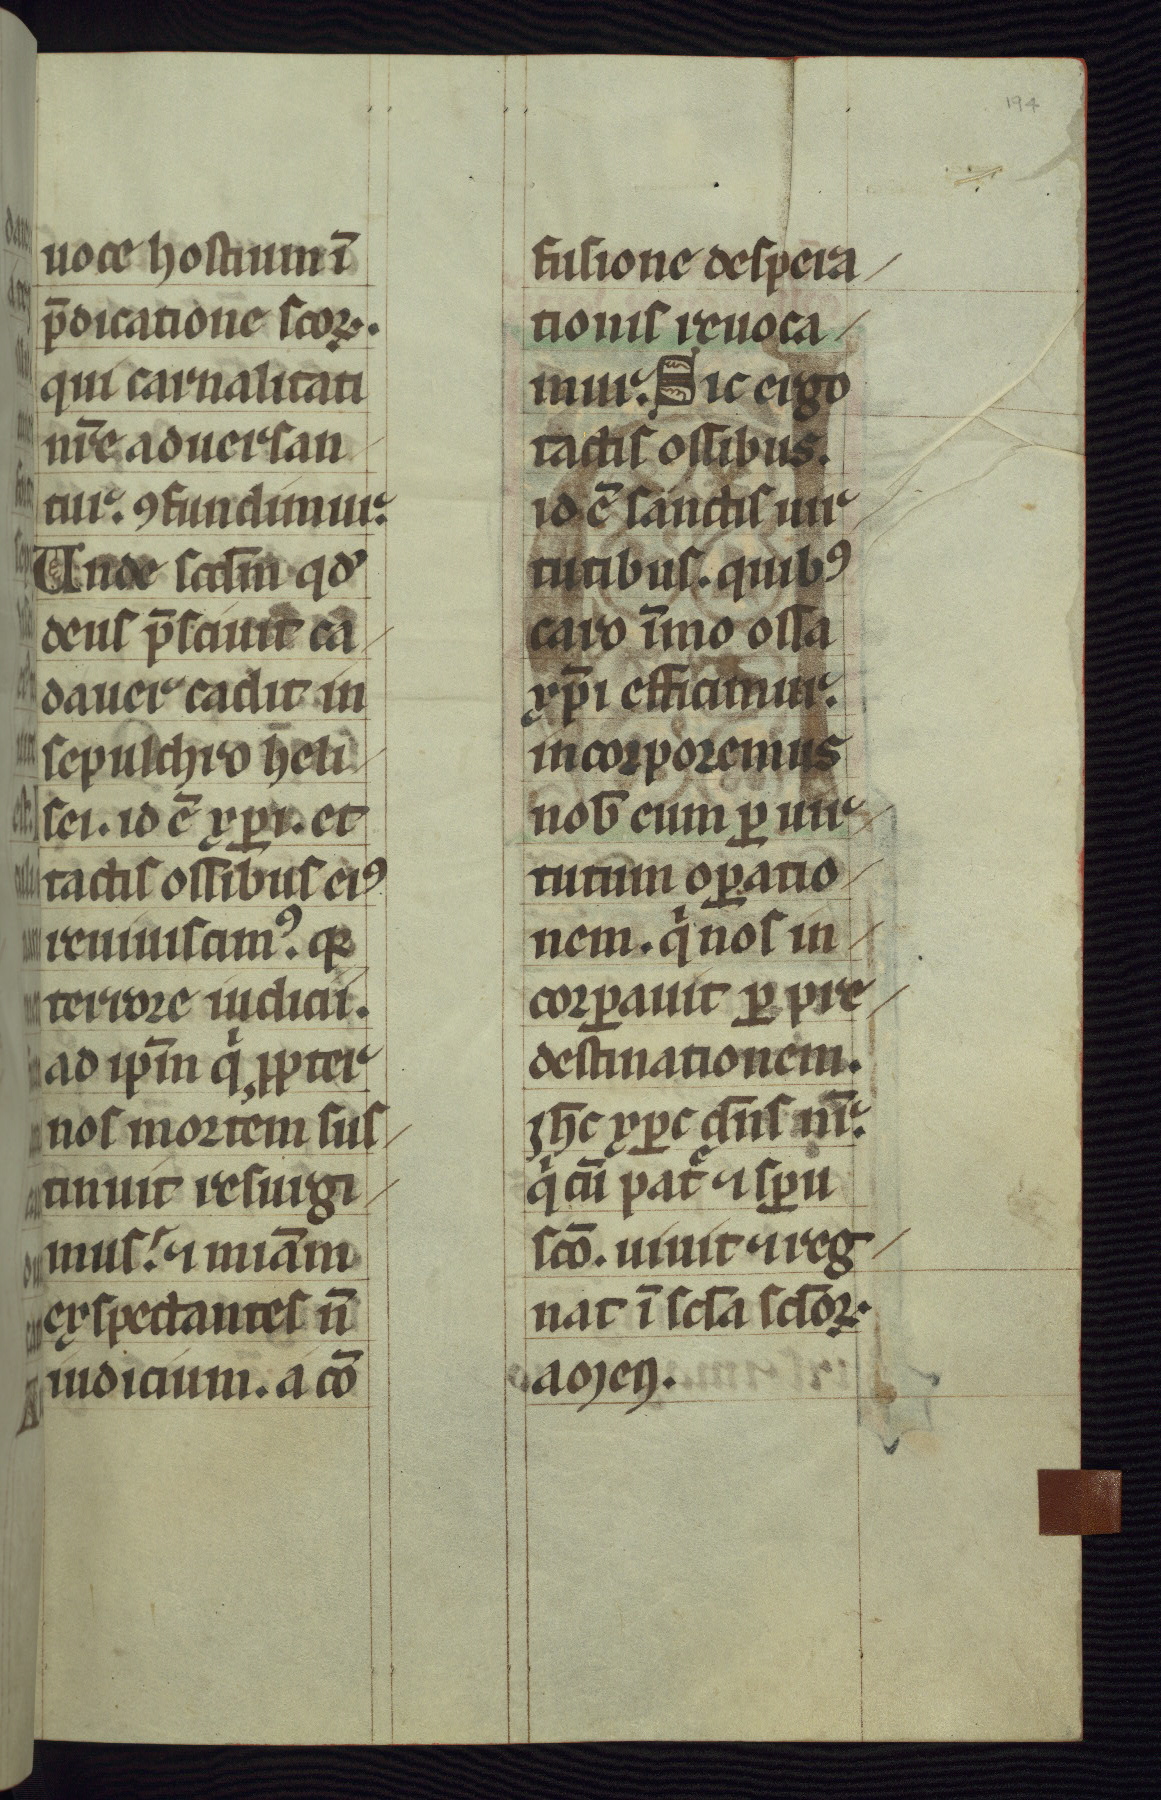 194
uoce hostium ī
p̄dicatione scoꝝ.
qui carnalitati
nr̄e aduersan
tur. ꝯfundimur.
Unde scdm̄ qđ
deus p̄sciuit ca
dauer cadit in
sepulchro heli
sei. id ē xp̄i. et
tactis ossibus eiꝰ
reuiuiscimꝰ. qꝛ
terrore iudicii.
ad ip̄m qͥ ꝓpter
nos mortem sus
tinuit resurgi
mus. ⁊ miām
exspectantes n̄
iudicium. a cō
fusione despera
tionis reuoca
mur. Sic ergo
tactis ossibus.
id ē sanctis uir
tutibus. quibꝰ
caro īmo ossa
xp̄i efficimur.
incorporemus
nob̄ eum ꝑ uir
tutum oꝑatio
nem. qͥ nos in
corꝑauit ꝑ pre
destinationem.
Ih̄c xp̄c dn̄s nr̄.
qͥ cū patͤ ⁊ sp̄u
scō. uiuit ⁊ reg
nat ī scl̄a scl̄oꝝ.
amen.